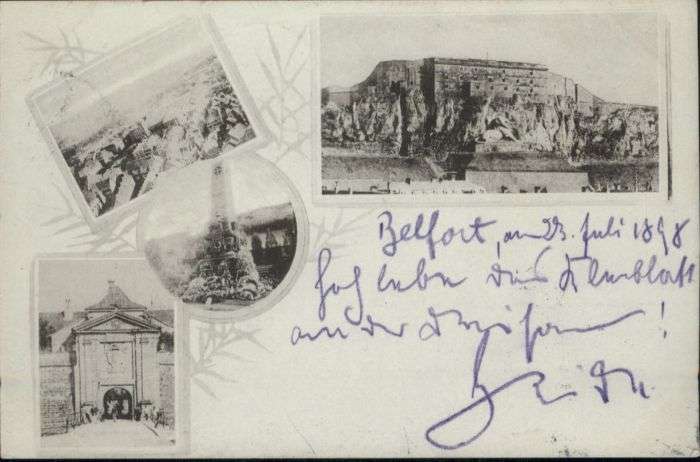 Belfort, am 23. Juli 1898
Hoch lebe das Kleeblatt
an der